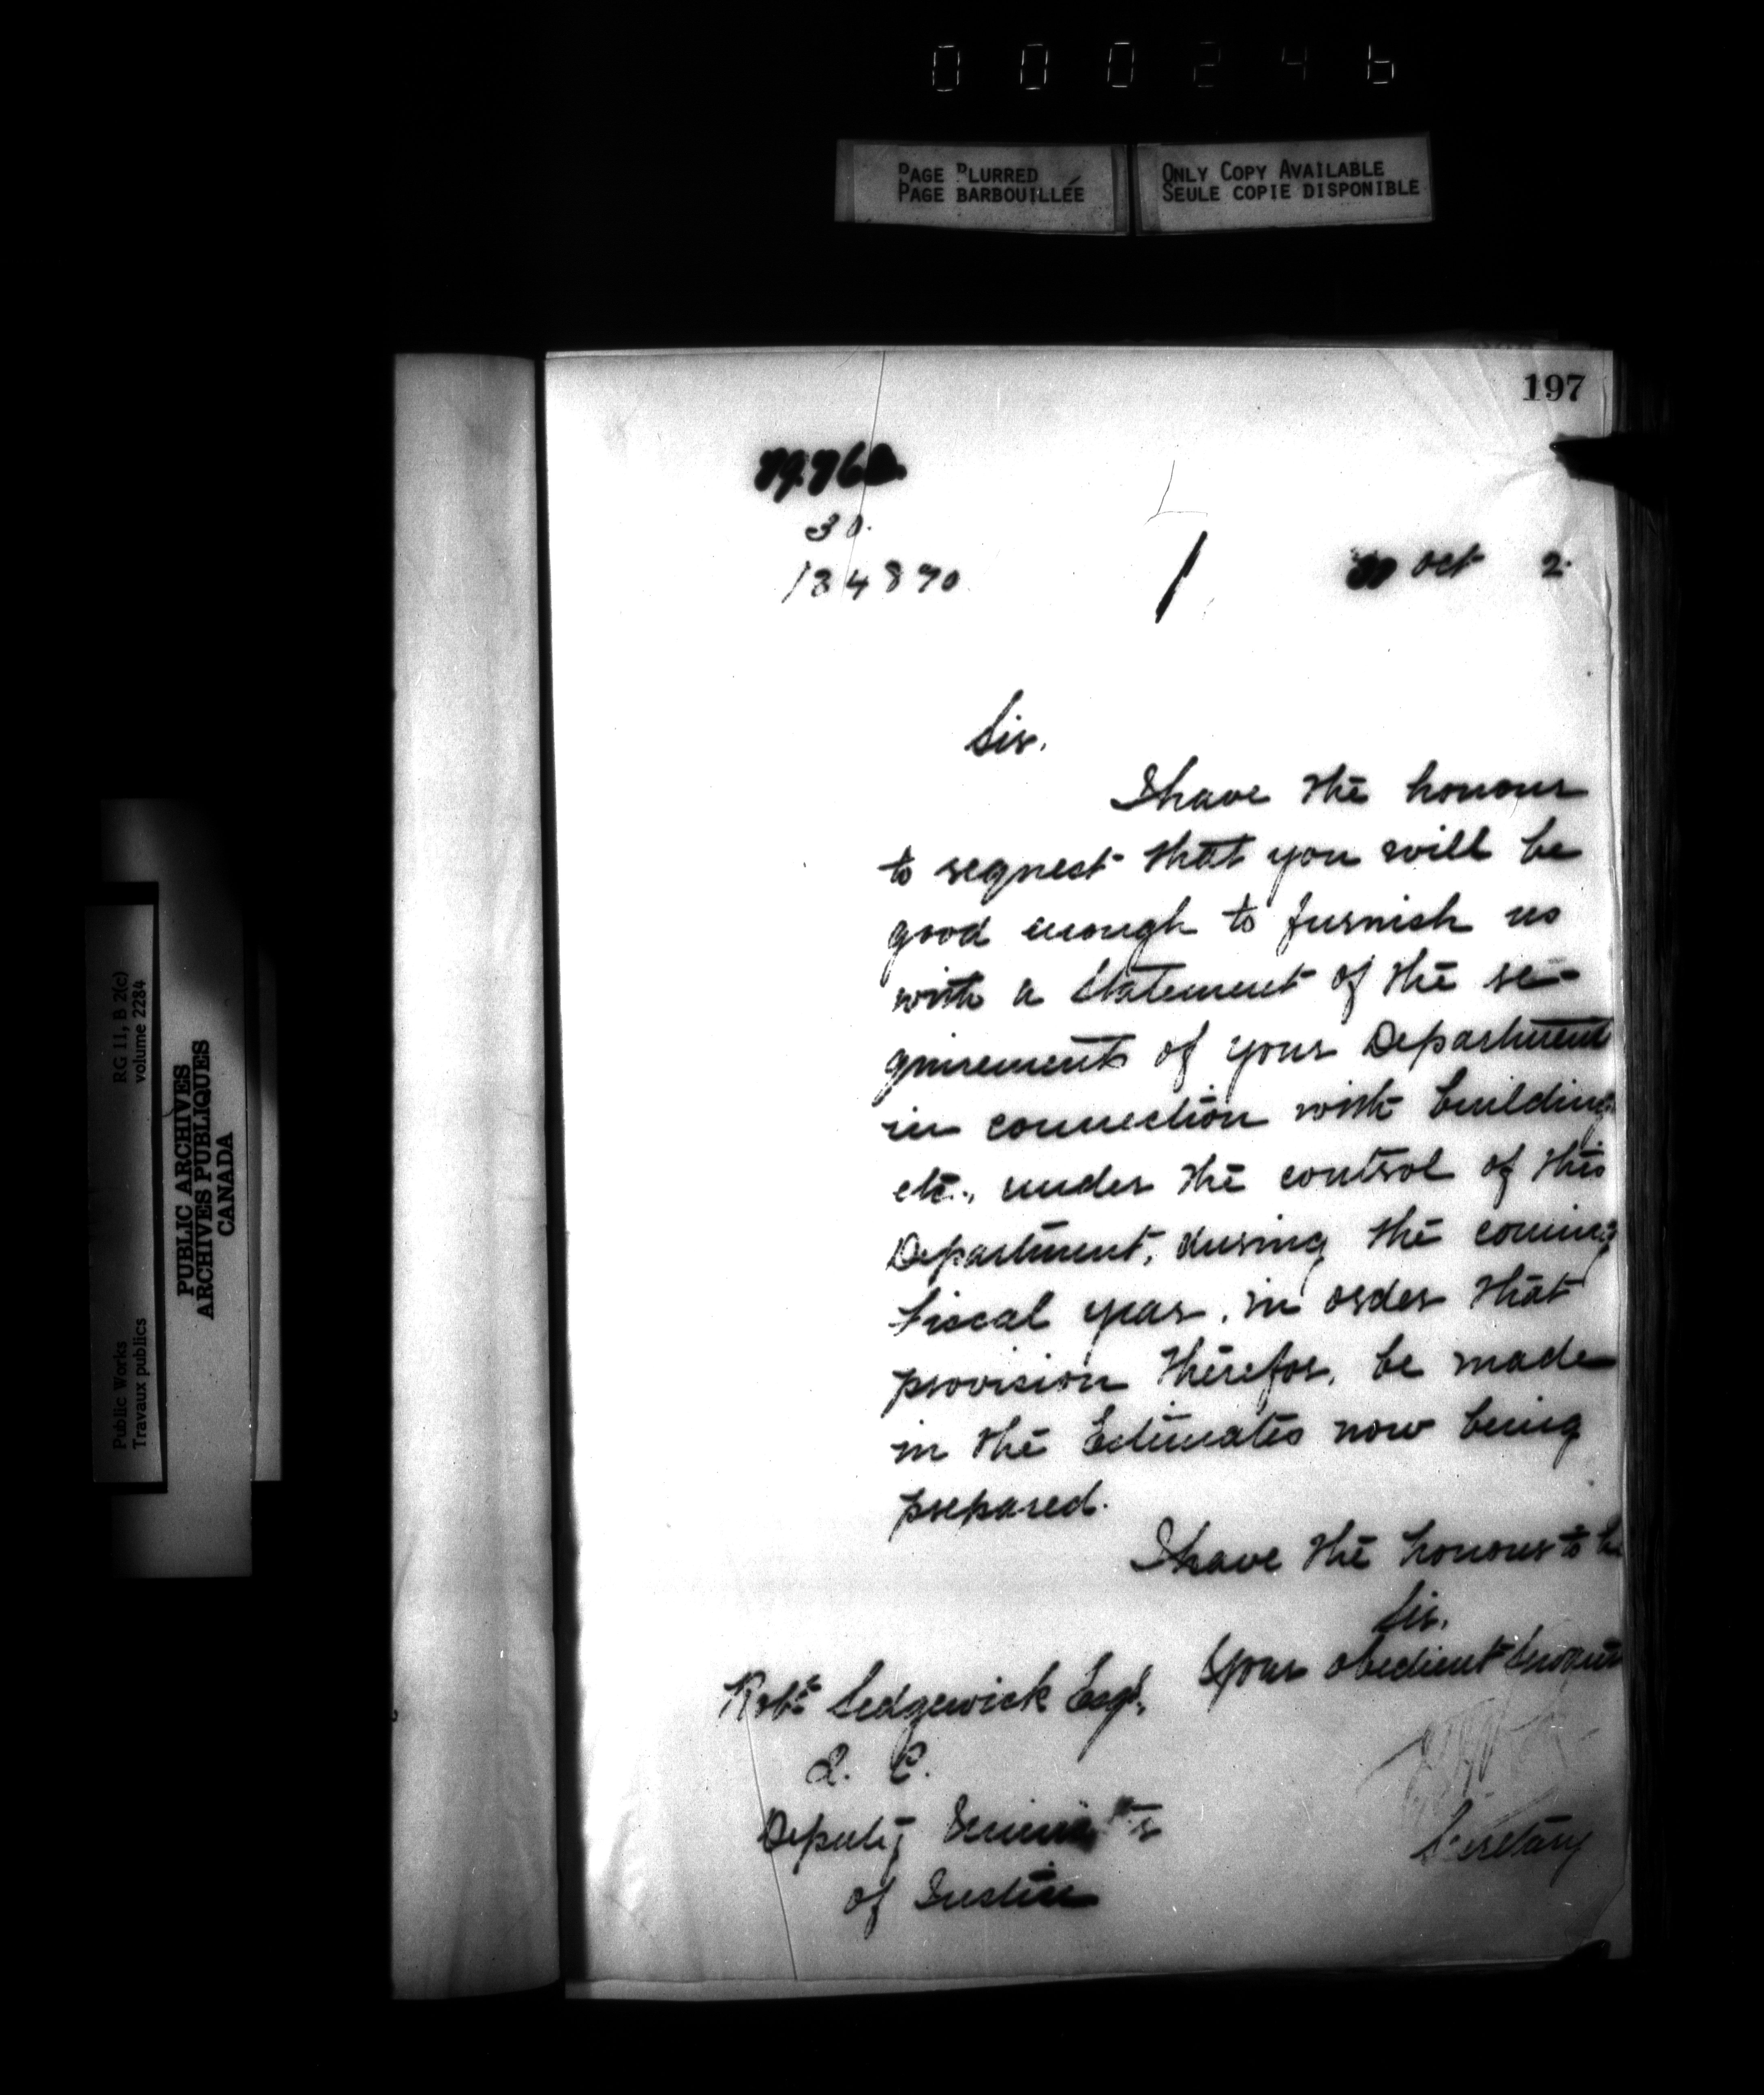 000246
PAGE BLURRED
PAGE BARBOUILLÉE
ONLY COPY AVAILABLE
SEULE COPIE DISPONIBLE
197
30.
134870
Oct 2.
Sir.
I have the honour
to request that you will be
good enough to furnish us
with a Statement of the re-
quirements of your Department
in connection with building
etc., under the control of this
Department, during the coming
fiscal year, in order that
provision therefor, be made
in the Estimates now being
prepared.
I have the honour to be
Sir.
Your obedient Servant
Robt Sedgewick Esqr.
Q. C.
Deputy Minister
of Justice
Secretary
RG 11, B 2(c)
volume 2284
Public Works
Travaux publics
PUBLIC ARCHIVES
ARCHIVES PUBLIQUES
CANADA